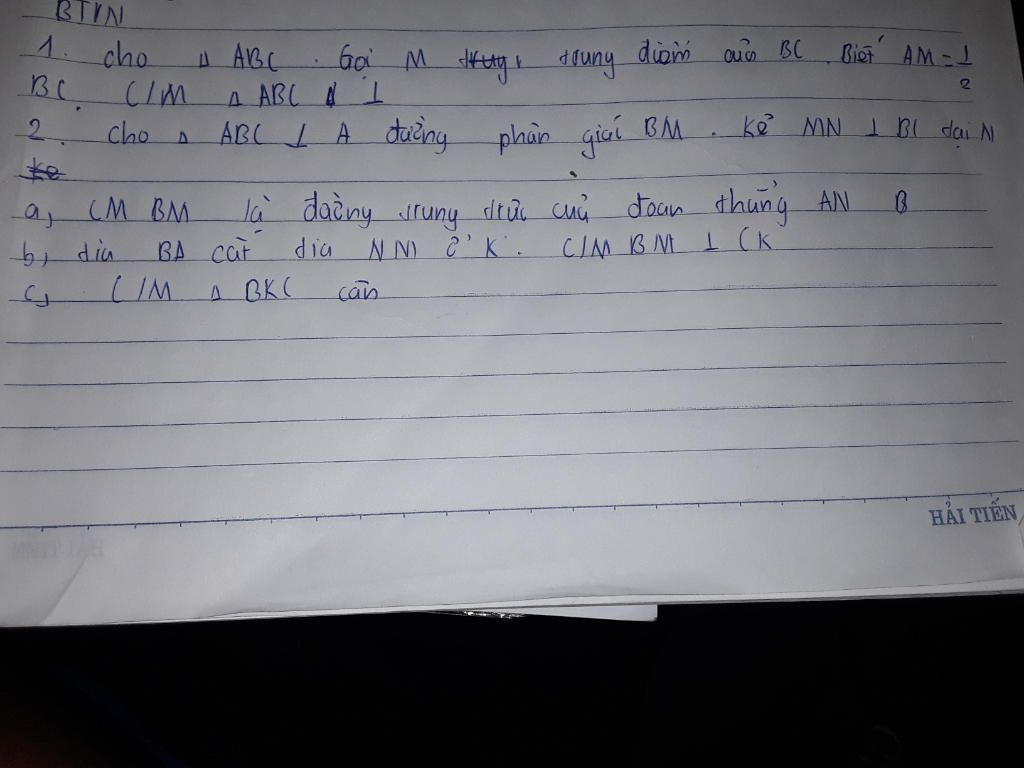 BTVN
1. cho Δ ABC. Gọi M trung điểm của BC. Biết AM = 1/2
BC. C/M Δ ABC ⊥
2. cho Δ ABC ⊥ A đường phân giác BM. Kẻ MN ⊥ BC tại N
a, CM BM là đường trung trức của đoan thẳng AN B
b, dia BA cắt dia NM ở K. C/M BM ⊥ CK
c, C/M Δ BKC cân
HẢI TIẾN